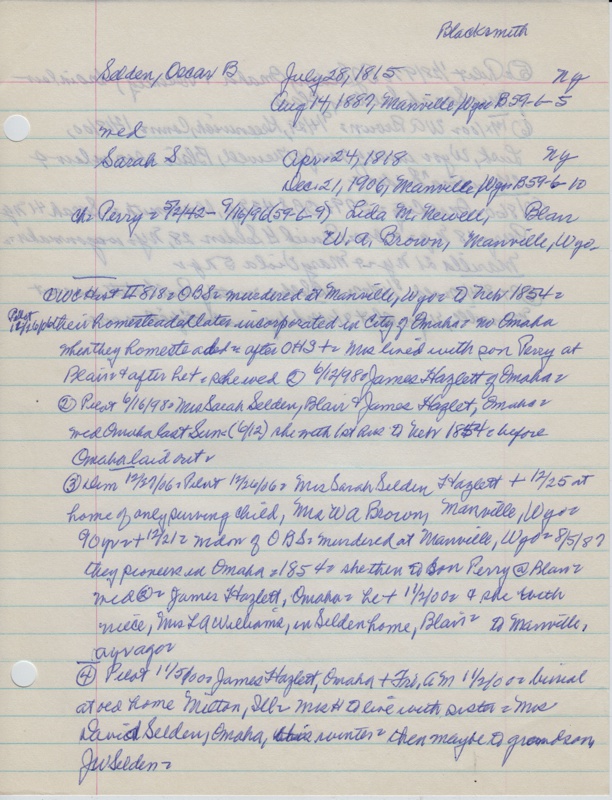 Blacksmith
Selden, Oscar B July 28, 1815 Ny
Aug 14, 1887, Manville, Wyo B59-6-5
wed
Sarah S Apr. 24, 1818 Ny
Dec. 21, 1906, Manville, Wyo B59-6-10
ch: Perry = 5/2/42 - 9/16/96 (59-6-9) Lida M. Newell, Blair
W. A. Brown, Manville, Wyo.
① WC Hist II 818 = OBS = murdered at Manville, Wyo = to Nebr 1854 =
Pilot 12/26/06 their homestead later incorporated in City of Omaha = no Omaha
when they homesteaded = after OHS + = Mrs lived with son Perry at
Blair = & after he + = she wed ② 6/12/98 = James Hazlett of Omaha =
② Pilot 6/16/98 = Mrs Sarah Selden, Blair & James Hazlet, Omaha =
wed Omaha last Sun = (6/12) she with 1st hus to Nebr 1854 = before
Omaha laid out =
③ Dem 12/27/06 = Pilot 12/26/06 = Mrs Sarah Selden Hazlett + 12/25 at
home of only surving child, Mrs W A Brown, Manville, Wyo =
90 yr = + 12/21 = widow of OBS = murdered at Manville, Wyo = 8/5/87
they pioneers in Omaha = 1854 = she then to son Perry @ Blair =
wed ② = James Hazlett, Omaha = he + 11/2/00 = & she with
niece, Mrs L A Williams, in Selden home, Blair = to Manville,
a yr ago =
④ Pilot 11/5/00 = James Hazlett, Omaha + Fri, AM 11/2/00 = burial
at old home Milton, Ill = Mrs H to live with sister = Mrs
David Selden, Omaha, this winter = then maybe to grandson,
JW Selden =